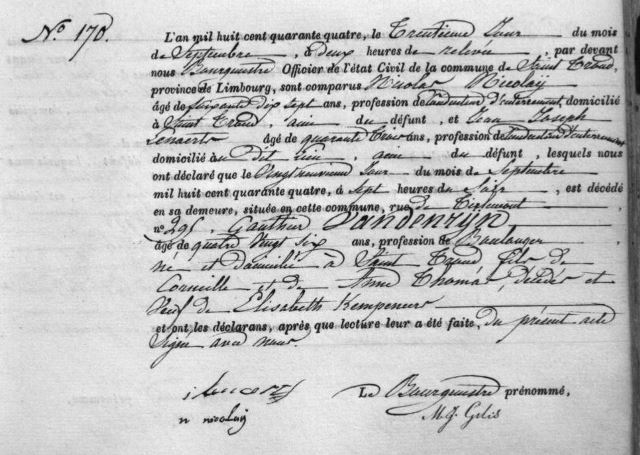 N.º 170.
L'an mil huit cent quarante quatre, le Trentième Jour du mois
de Septembre, à deux heures de relevée, par devant
nous Bourgmestre Officier de l'état Civil de la commune de Saint Trond,
province de Limbourg, sont comparus Nicolas Nicolaÿ
âgé de soixante dix sept ans, profession de conducteur d'enterrement, domicilié
à Saint Trond, ami du défunt, et Jean Joseph
Lenaerts âgé de quarante trois ans, profession de conducteur d'enterrement
domicilié au dit lieu, ami du défunt, lesquels nous
ont déclaré que le Vingt neuvième Jour du mois de Septembre
mil huit cent quarante quatre, à sept heures du Soir, est décédé
en sa demeure, située en cette commune, rue de Tirlemont
nº Gauthier Vandenrijn
âgé de quatre Vingt Six ans, profession de Boulanger
né et domicilié à Saint Trond fils de
Corneille et de Anne Thomas, décédés et
Veuf de Elisabeth Kempeneer
et ont les déclarans, après que lecture leur a été faite, du présent acte
Signé avec nous.
Le Bourgmestre prénommé,
n nicolaij
Gelis